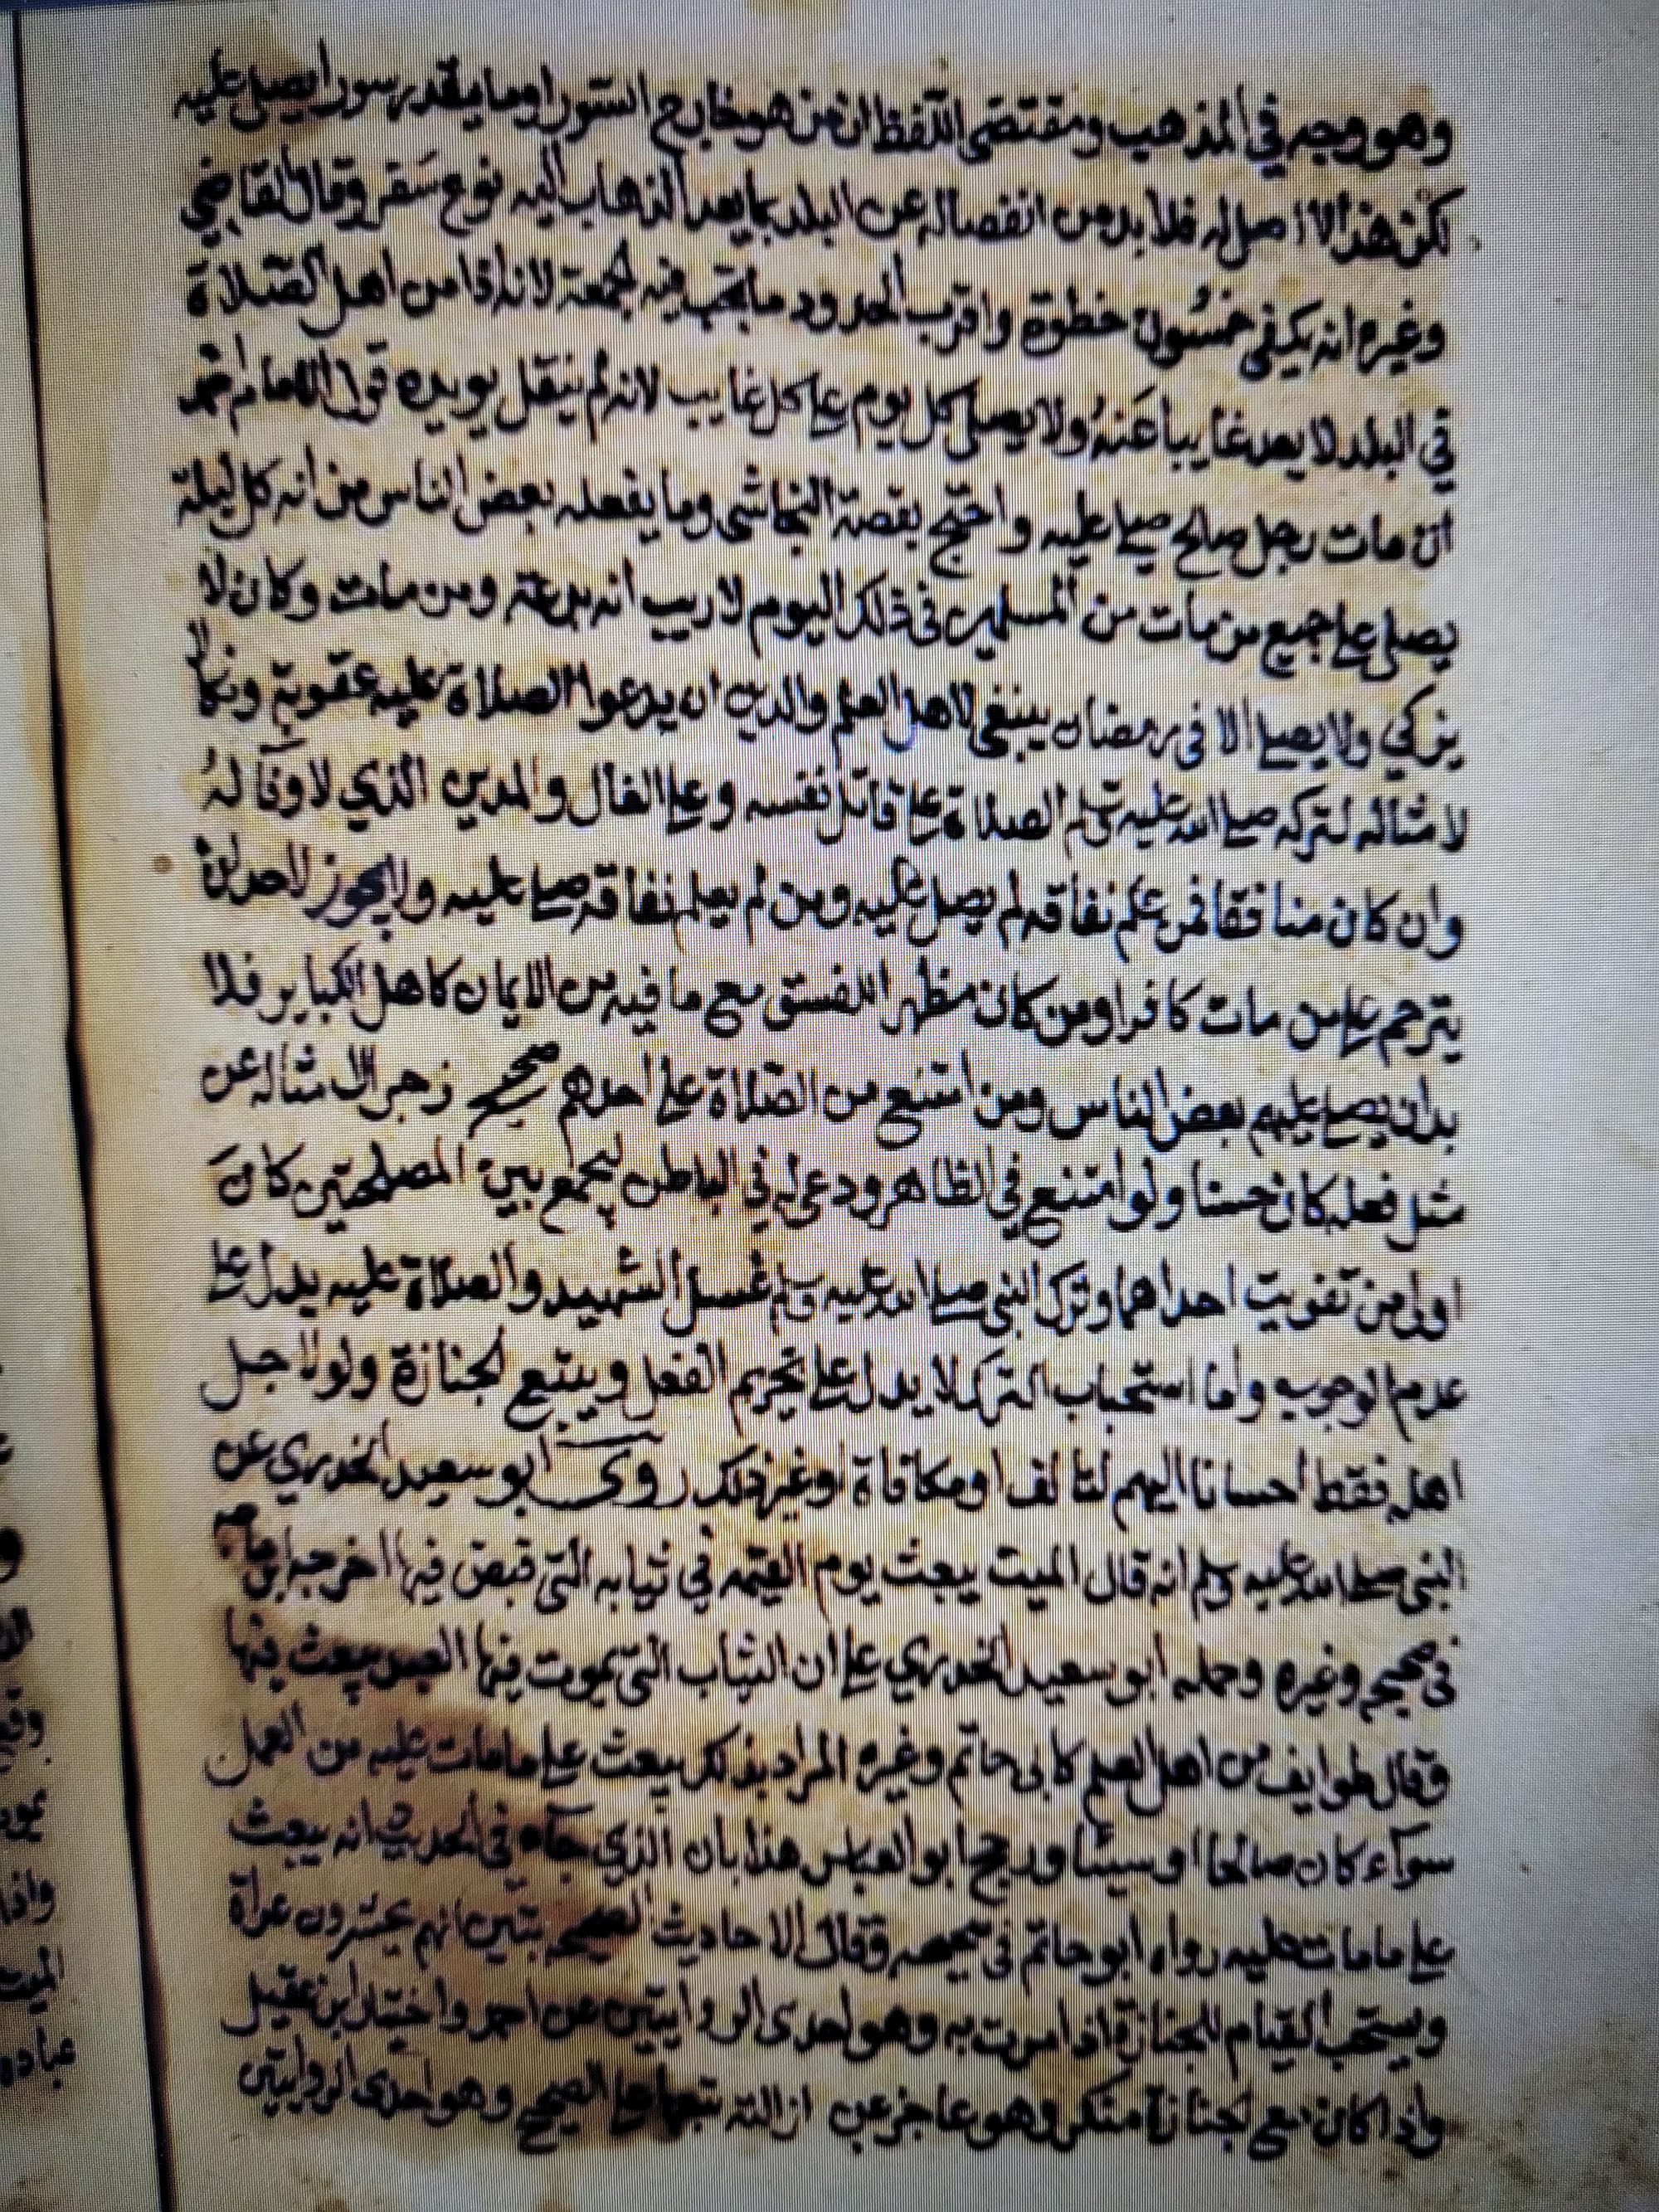 وهو وجه في المذهب ومقتضى اللفظ ان من هو خارج السور او ما يقدر سورا يصلى عليه
لكن هذا لا اصل له فلا بد من انفصاله عن البلد بما يعد الذهاب اليه نوع سفر وقال القاضي
وغيره انه يكفى خمسون خطوة واقرب الحدود ما يجب فيه الجمعة لانه اذا من اهل الصلاة
في البلد لا يعد غايبا عنه ولا يصلى كل يوم على كل غايب لانه لم ينقل يويده قول الامام احمد
ان مات رجل صالح صلى عليه واحتج بقصة النجاشى وما يفعله بعض الناس من انه كل ليلة
يصلى على جميع من مات من المسلمين في ذلك اليوم لا ريب انه بدعة ومن مات وكان لا
يزكي ولا يصلى الا فى رمضان ينبغى لاهل العلم والدين ان يدعوا الصلاة عليه عقوبة ونكالا
لامثاله لتركه صلى الله عليه وسلم الصلاة على قاتل نفسه وعلى الغال والمدين الذي لا وفا له
وان كان منافقا فمن علم نفاقه لم يصل عليه ومن لم يعلم نفاقه صلى عليه ولا يجوز لاحد ان
يترحم على من مات كافرا ومن كان مظهرا للفسق مع ما فيه من الايمان كاهل الكباير فلا
بد ان يصلى عليهم بعض الناس ومن امتنع من الصلاة على احدهم صحيح زجرا لامثاله عن
مثل فعله كان حسنا ولو امتنع في الظاهر ودعى له في الباطن ليجمع بين المصلحتين كان
اولى من تفويت احداهما وترك النبى صلى الله عليه وسلم غسل الشهيد والصلاة عليه يدل على
عدم الوجوب واما استحباب الترك لا يدل على تحريم الفعل ويتبع الجنازة ولو لاجل
اهله فقط احسانا اليهم لتالف او مكافاة او غير ذلك روى ابو سعيد الخدري عن
النبى صلى الله عليه وسلم انه قال الميت يبعث يوم القيمه في ثيابه التى قبض فيها اخرجه ابو حاتم
فى صحيحه وغيره وحمله ابو سعيد الخدري على ان الثياب التى يموت فيها العبد يبعث فيها
وقال طوايف من اهل العلم كابى حاتم وغيره المراد بذلك يبعث على ما مات عليه من العمل
سوآء كان صالحا او سيئا ورجح ابو العباس هذا بان الذي جآء في الحديث انه يبعث
على ما مات عليه رواه ابو حاتم فى صحيحه وقال الاحاديث الصحيحه تبين انهم يحشرون عراة
ويستحب القيام للجنازة اذا مرت به وهو احدى الروايتين عن احمد واختيار ابن عقيل
واذا كان مع الجنازة منكر وهو عاجز عن ازالته تبعها على الصحيح وهو احدى الروايتين